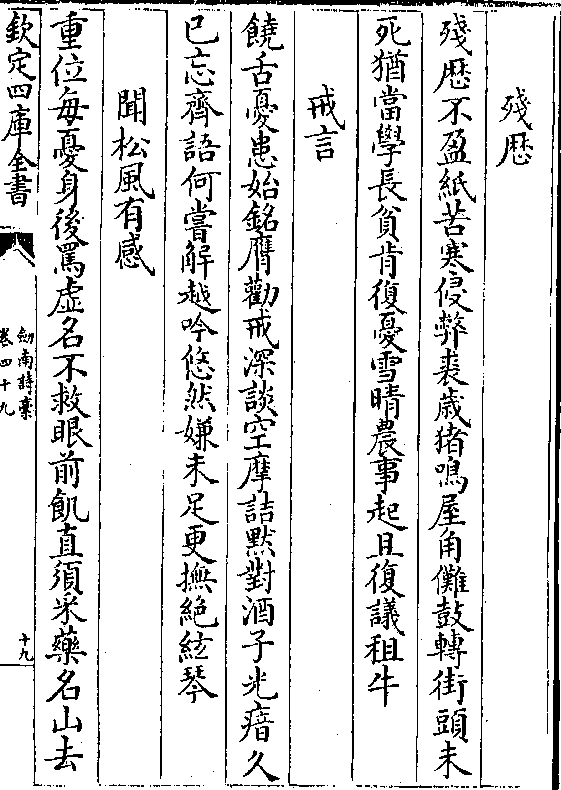 殘厯
殘厯不盈紙苦寒侵弊裘歲猪鳴屋角儺鼓轉街頭未
死猶當學長貧肯復憂雪晴農事起且復議租牛
戒言
饒舌憂患始銘膺勸戒深談空摩詰黙對酒子光瘖久
已忘齊語何嘗解越吟悠然嫌未足更撫絶絃琴
聞松風有感
重位每憂身後罵虚名不救眼前飢直須采藥名山去
欽定四庫全書
劍南詩稾
卷四十九
十九